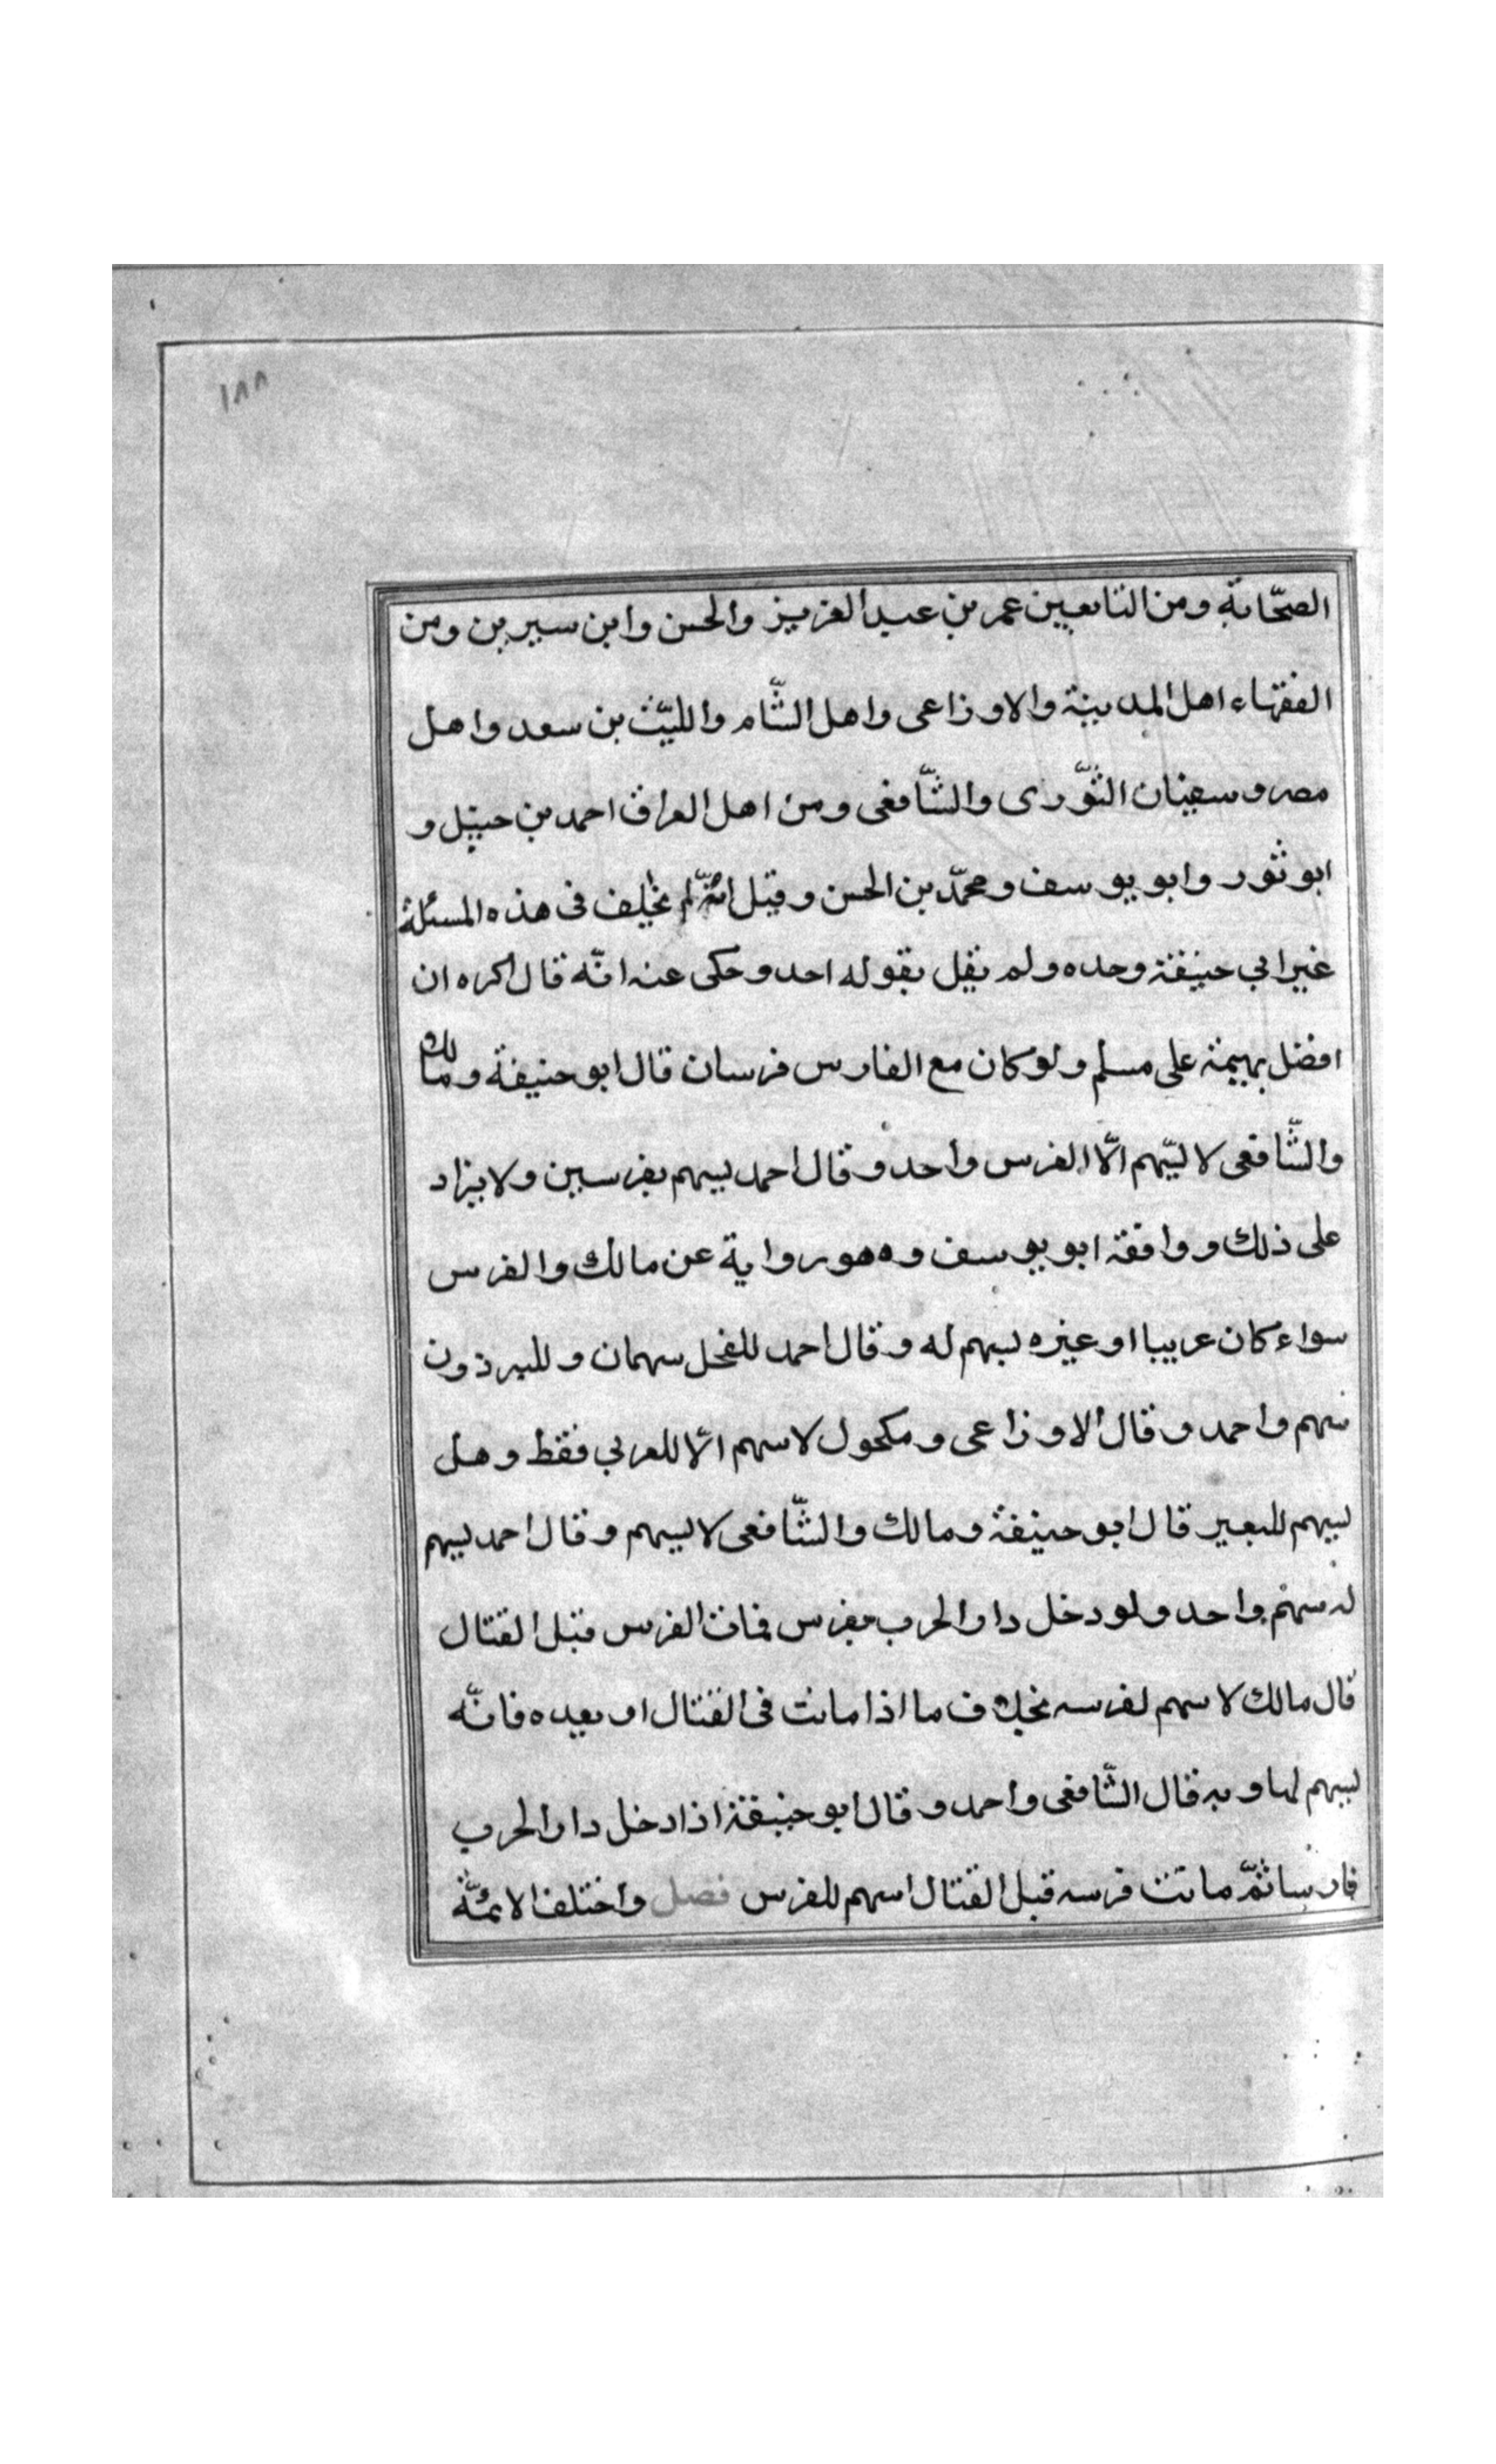 ١٨٨
الصحّابة ومن التابعين عمر بن عبد العزيز والحسن وابن سيرين ومن
الفقهاء اهل المدينة والاوزاعى واهل الشّام والليّث بن سعد واهل
مصر وسفيان الثّورى والشّافعى ومن اهل العراق احمد بن حنبل و
ابو ثور وابو يوسف ومحمّد بن الحسن وقيل انّه لم يخلف فى هذه المسئلة
غير ابي حنيفة وحده ولم يقل بقوله احد وحكى عنه انّه قال اكره ان
افضل بهيمة على مسلم ولو كان مع الفارس فرسان قال ابو حنيفة ومالك
والشّافعى لا يسهم الّا الفرس واحد وقال احمد يسهم بفرسين ولا يزاد
على ذلك ووافقه ابو يوسف وهو رواية عن مالك والفرس
سواء كان عربيا او غيره يسهم له وقال احمد للفحل سهمان وللبرذون
سهم واحد وقال الاوزاعى ومكحول لا سهم الّا للعربي فقط وهل
يسهم للبعير قال ابو حنيفة ومالك والشّافعى لا يسهم وقال احمد يسهم
له سهم واحد ولو دخل دار الحرب بفرس فمات الفرس قبل القتال
قال مالك لا سهم لفرسه بخلاف ما اذا مات فى القتال او بعده فانّه
يسهم لها وبه قال الشّافعى واحمد وقال ابو حنيفة اذا دخل دار الحرب
فارسا ثمّ ماتت فرسه قبل القتال اسهم للفرس فصل واختلف الائمّة